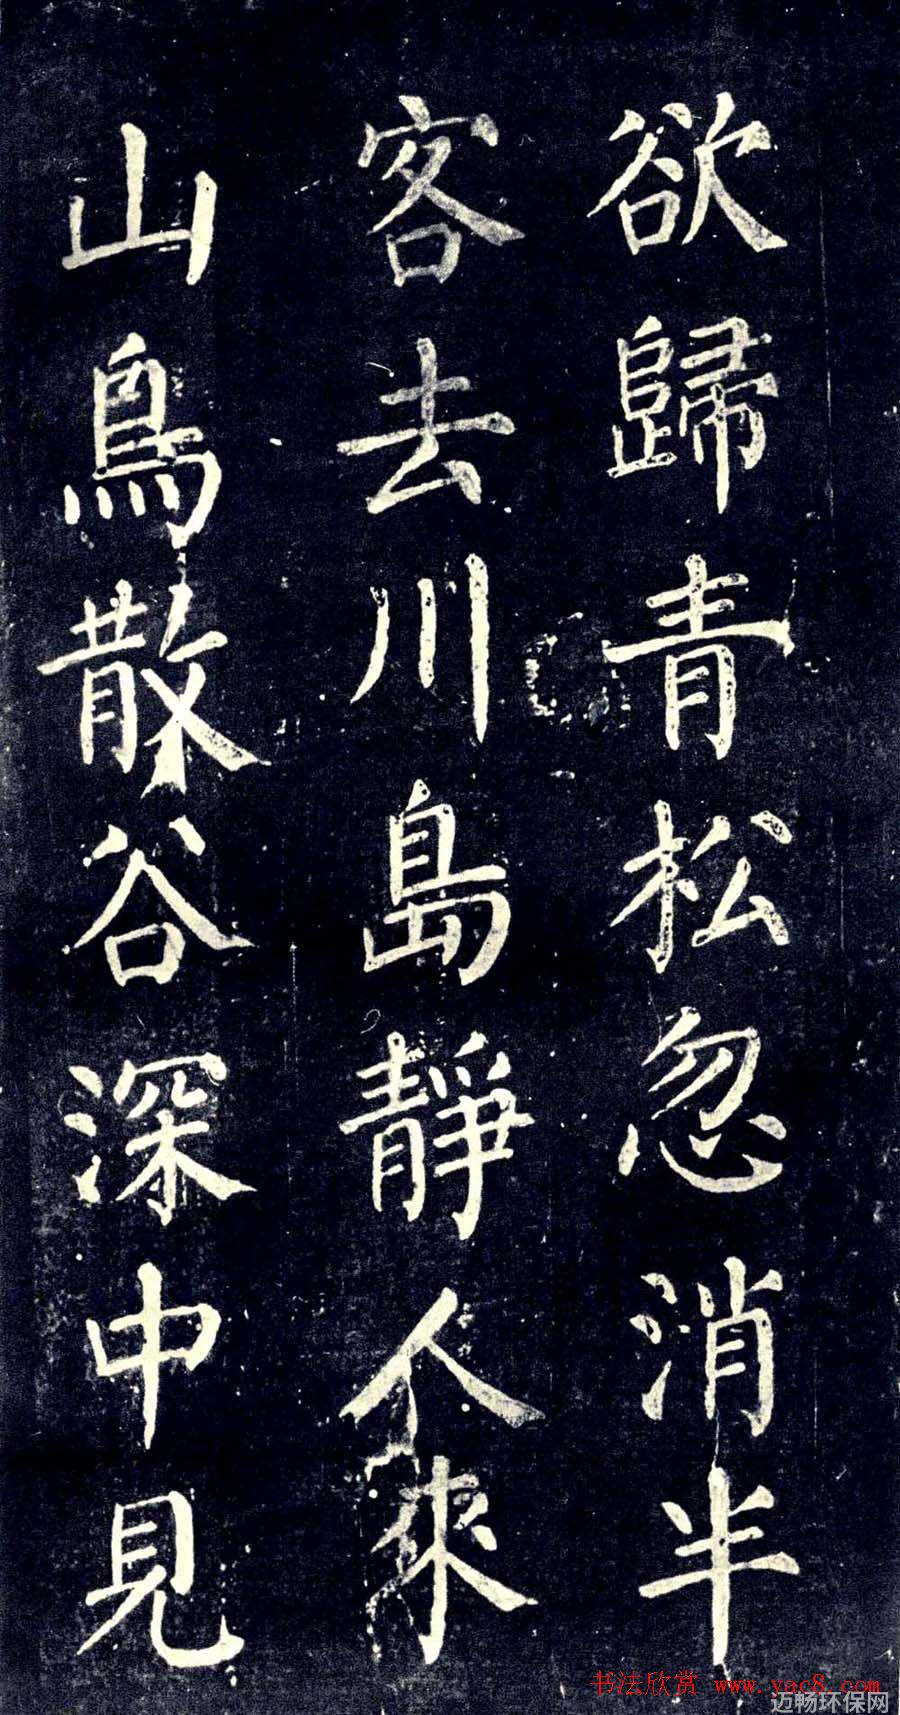 欲歸青松忽消半
客去川島靜人來
山鳥散谷深中見
书法欣赏 www.yac8.com
迈畅环保网